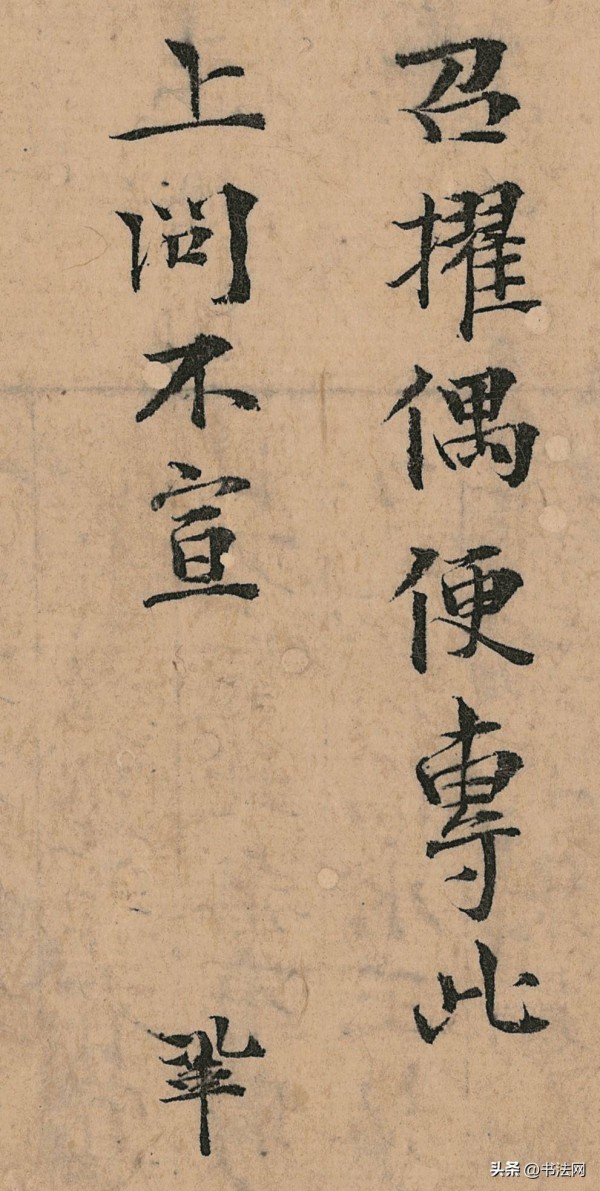 召擢偶便專此
上问不宣
鞏
头条 @书法网